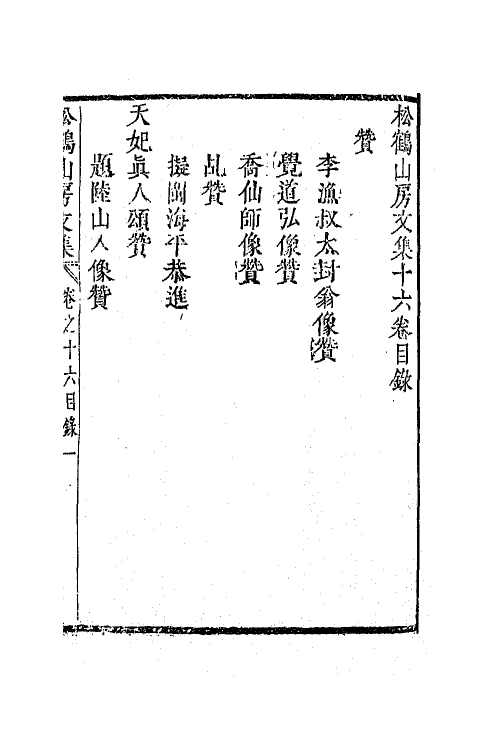 松鶴山房文集十六卷目錄
贊
李漁叔太封翁像贊
覺道弘像贊
喬仙師像贊
乩贊
擬闢海平恭進
天妃眞人頌贊
題陸山人像贊
松鶴山房文集 卷之十六目錄 一